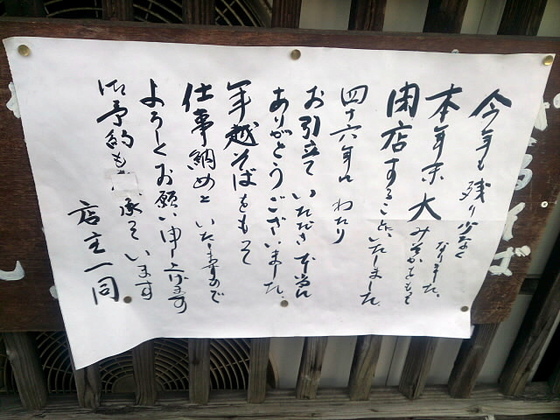 今年も残り少なくなりました、
本年末大みそかをもって
閉店することに、いたしました
四十六年にわたり
お引立ていただき本当に
ありがとうございました。
年越そばをもって
仕事納めといたしますので
よろしくお願い申し上げます
御予約も承っています
店主一同